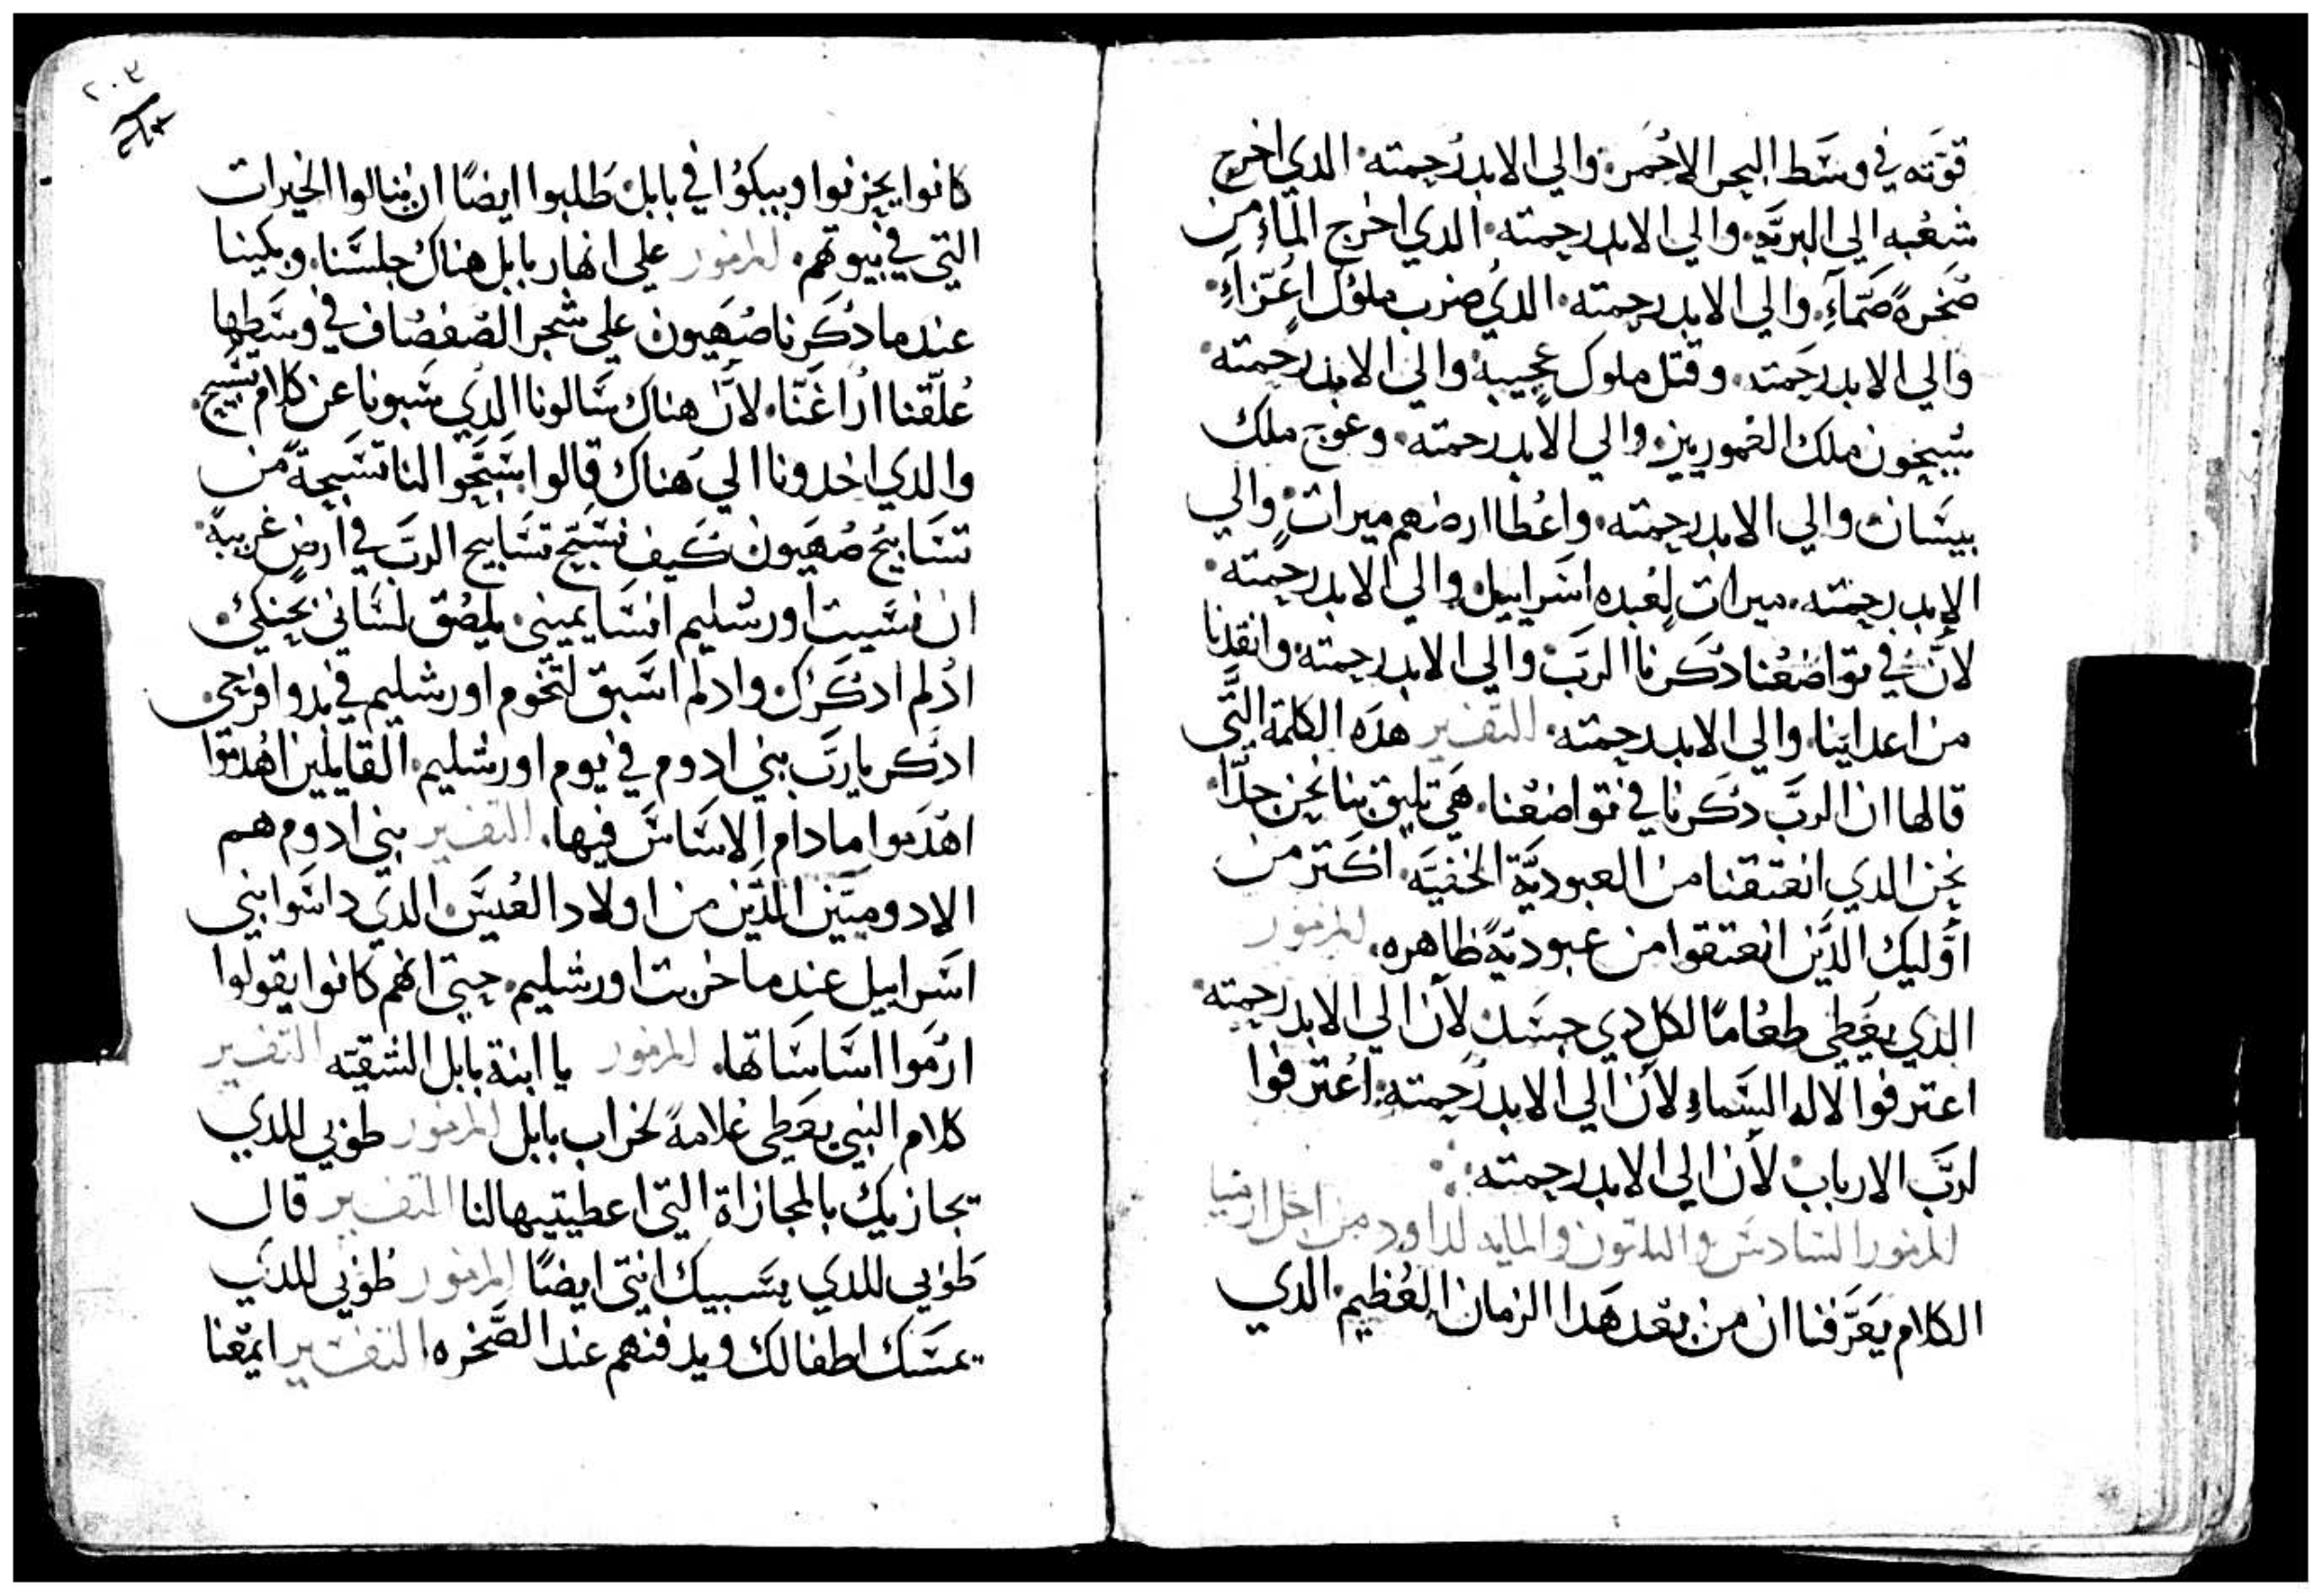 قوّته في وسَط البحر الاحمر والي الابد رحمته الدي اخرج
شعبه الي البريَّه والي الابد رحمته الدي اخرج الماء من
صخرةً صَمّآءٍ والي الابد رحمته الدي ضرب ملوك اعزّآءٍ
والي الابد رحمته وقتل ملوك عجيبة والي الابد رحمته
سيحون ملك العموريين والي الابد رحمته وعوج ملك
بيسَان والي الابد رحمته واعطا ارضهم ميرات والي
الابد رحمته ميرات لعبده اسَراييل والي الابد رحمته
لأن في تواضعنا دكَرنا الربَ والي الابد رحمته وانقدنا
من اعداينا والي الابد رحمته التفسير هدَه الكلمة التَّي
قالها ان الربَّ دكَرنا في تواضعنا هَي تليق بنا نحن جدًّا
نحن الدي انعتقنا من العبوديَّة الخفيَّه اكتر من
أوليك الدَّين انعتقوا من عبوديةً ظاهره المزمور
الدي يعَطي طعامًا لكل دي جسَد لأن الي الابد رحمته
اعترفوا لاله السَماء لأن الي الابد رحمته اعترفوا
لربَّ الارباب لأن الي الابد رحمته
المزمور السَادسَ والتلاتون والمايه لداود من اجل ارميا
الكلام يعَرَّفنا ان من بعد هَدا الزمان العظيم الدي
٢٠٣
كانوا يحزنوا ويبكوا في بابل طلبوا ايضًا ان ينالوا الخيرات
التي في بيوتهم المزمور علي انهار بابل هناك جلسَنا وبكينا
عندما دكَرنا صهَيون علي شجر الصفصاف في وسَطها
علّقنا اراغَنّا لأن هناك سَالونا الدي سَبونا عن كلام تسَبيح
والدي اخدونا الي هناك قالوا سَبَّحوا لنا تسَبحةً من
تسَابيح صهَيون كَيف نسَبّح تسَابيح الربَ في ارضٍ غريبةً
ان نسَيت اورشليم انسَا يميني يلصق لسَاني بحنكي
ادلم ادكَرك وادلم اسَبق لتخوم اورشليم في بدو افرحي
ادكر يا ربَّ بني ادوم في يوم اورشليم القايلين اهدموا
اهدَموا مادام الاسَاسَ فيها التفسير بني ادوم هم
الادوميّين الدّين من اولاد العيسَ الدي داسَوا بني
اسَراييل عندما خربت اورشليم حتي انهم كانوا يقولوا
ارَموا اسَاسَاتها المزمور يا ابنة بابل الشقيّه التفسير
كلام النبي يعَطي علامةً لخراب بابل المزمور طوبي للدي
يجازيك بالمجازاة التي اعطيتيها لنا التفسير قال
طوبي للدي يسَبيك انتي ايضًا المزمور طوبي للدي
يمسَك اطفالك ويدفنهم عند الصَّخره التفسير ايمّعنا